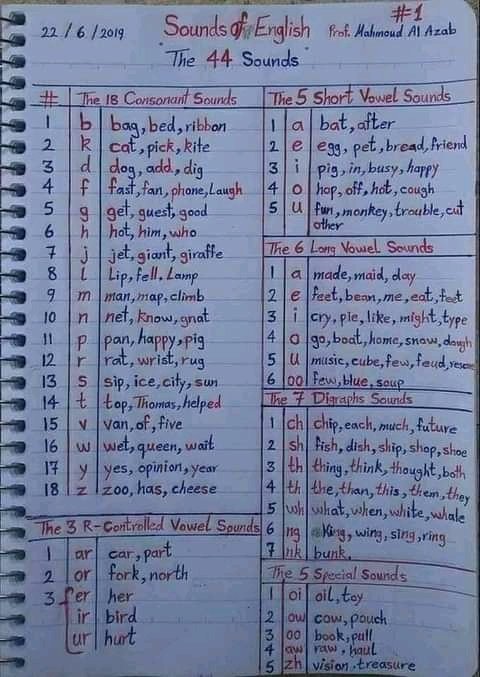 #1
22/6/2019 Sounds of English Prof. Mahmoud Al Azab
"The 44 Sounds"
# The 18 Consonant Sounds
1 b bag, bed, ribbon
2 k cat, pick, kite
3 d dog, add, dig
4 f fast, fan, phone, Laugh
5 g get, guest, good
6 h hot, him, who
7 j jet, giant, giraffe
8 l Lip, fell, Lamp
9 m man, map, climb
10 n net, know, gnat
11 p pan, happy, pig
12 r rat, wrist, rug
13 s sip, ice, city, sun
14 t top, Thomas, helped
15 v van, of, five
16 w wet, queen, wait
17 y yes, opinion, year
18 z zoo, has, cheese
The 3 R-Controlled Vowel Sounds
1 ar car, part
2 or fork, north
3 er her
ir bird
ur hurt
The 5 Short Vowel Sounds
1 a bat, after
2 e egg, pet, bread, friend
3 i pig, in, busy, happy
4 o hop, off, hot, cough
5 u fun, monkey, trouble, cut
other
The 6 Long Vowel Sounds
1 a made, maid, day
2 e feet, bean, me, eat, feet
3 i cry, pie, like, might, type
4 o go, boat, home, snow, dough
5 u music, cube, few, feud,
6 oo few, blue, soup
The 7 Digraphs Sounds
1 ch chip, each, much, future
2 sh fish, dish, ship, shop, shoe
3 th thing, think, thought, both
4 th the, than, this, them, they
5 wh what, when, white, whale
6 ng King, wing, sing, ring
7 nk bunk.
The 5 Special Sounds
1 oi oil, toy
2 ow cow, pouch
3 oo book, pull
4 aw raw, haul
5 zh vision, treasure